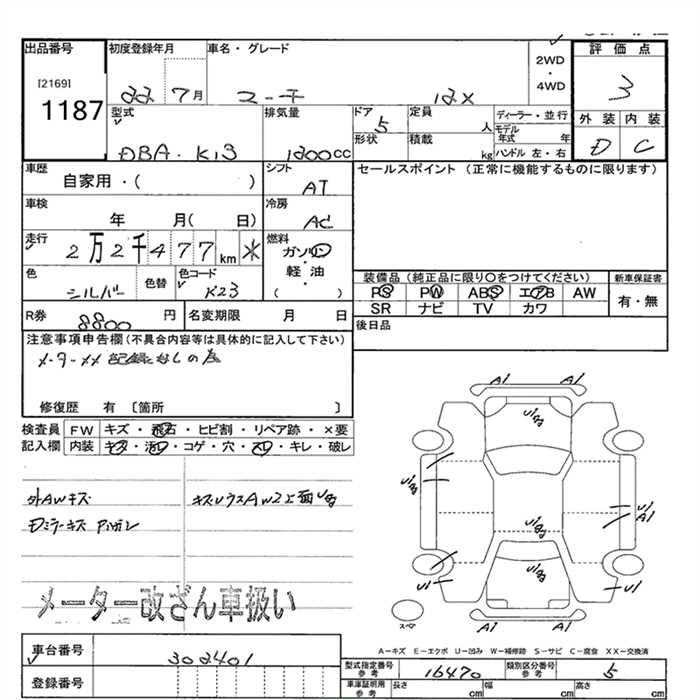 出品番号
[2169]
1187
初度登録年月
22 7月
車名・グレード
マーチ 12X
2WD
・
4WD
評価点
3
外装 内装
D C
型式
DBA・K13
排気量
1200cc
ドア
5
形状
定員
人
積載
kg
ディーラー・並行
モデル年式 年
ハンドル 左・右
車歴
自家用・( )
シフト
AT
車検
年 月( 日)
冷房
AC
走行
2万2千477km *
燃料
ガソリン
・
軽油
( )
色
シルバー
色替
色コード
K23
R券
8800円
名変期限 月 日
セールスポイント(正常に機能するものに限ります)
装備品(純正品に限り○をつけてください)
PS PW ABS エアB AW
SR ナビ TV カワ
新車保証書
有・無
後日品
注意事項申告欄(不具合内容等は具体的に記入して下さい)
メーター×× 記録なしの為
修復歴 有 [箇所 ]
検査員記入欄
FW キズ・飛石・ヒビ割・リペア跡・×要
内装 キズ・汚レ・コゲ・穴・スレ・キレ・破レ
外AWキズ
Dミラーキズ
メーター改ざん車扱い
A1 A1
U1
A1
U1 U1
A1 A1
スペア
A－キズ E－エクボ U－凹み W－補修跡 S－サビ C－腐食 XX－交換済
車台番号
302401
登録番号
型式指定番号
参考
16470
類別区分番号
参考
5
車庫証明用
参考
長さ cm
幅 cm
高さ cm